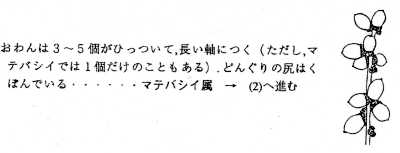 おわんは3～5個がひっついて,長い軸につく（ただし,マ
テバシイでは1個だけのこともある）.どんぐりの尻はく
ぼんでいる・・・・・・マテバシイ属　→　(2)へ進む